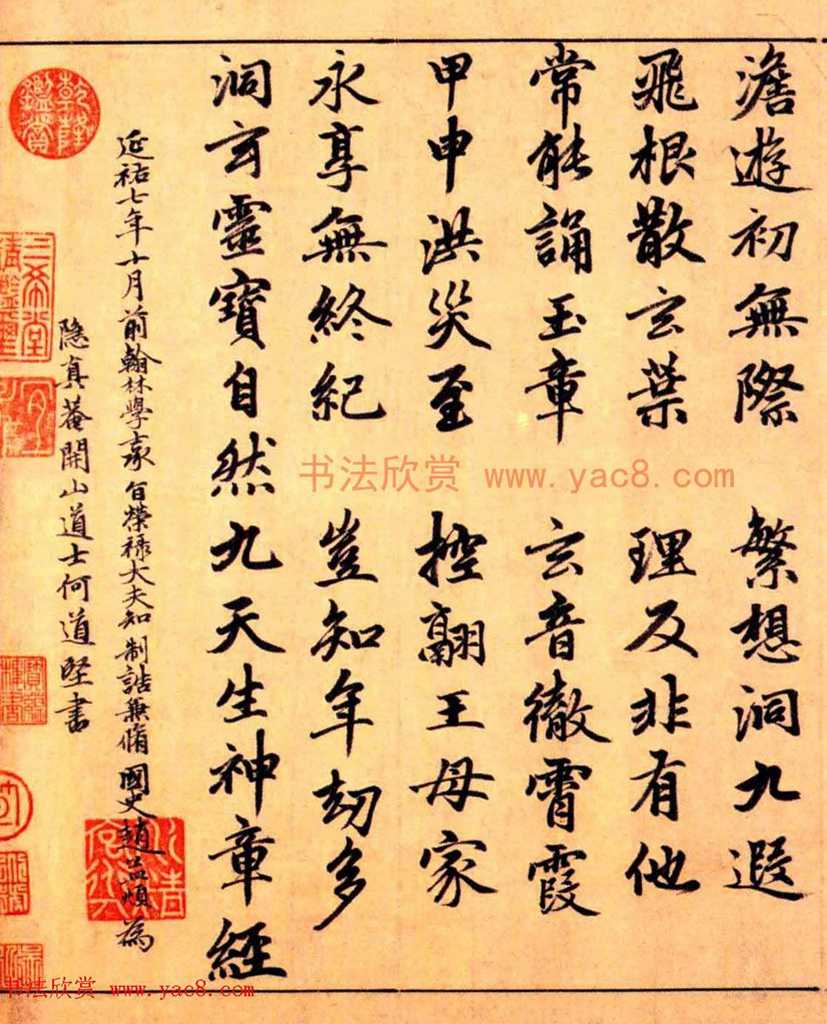 澹遊初無際 繁想洞九遐
飛根散玄葉 理反非有他
常能誦玉章 玄音徹霄霞
甲申洪災至 控翮王母家
永享無終紀 豈知年劫多
洞玄靈寶自然九天生神章經
延祐七年十月前翰林學士承旨榮祿大夫知制誥兼脩國史趙孟頫為
隱真菴開山道士何道堅書
乾隆鑑賞
三希堂精鑑璽
書法欣賞 www.yac8.com
书法欣赏 www.yac8.com